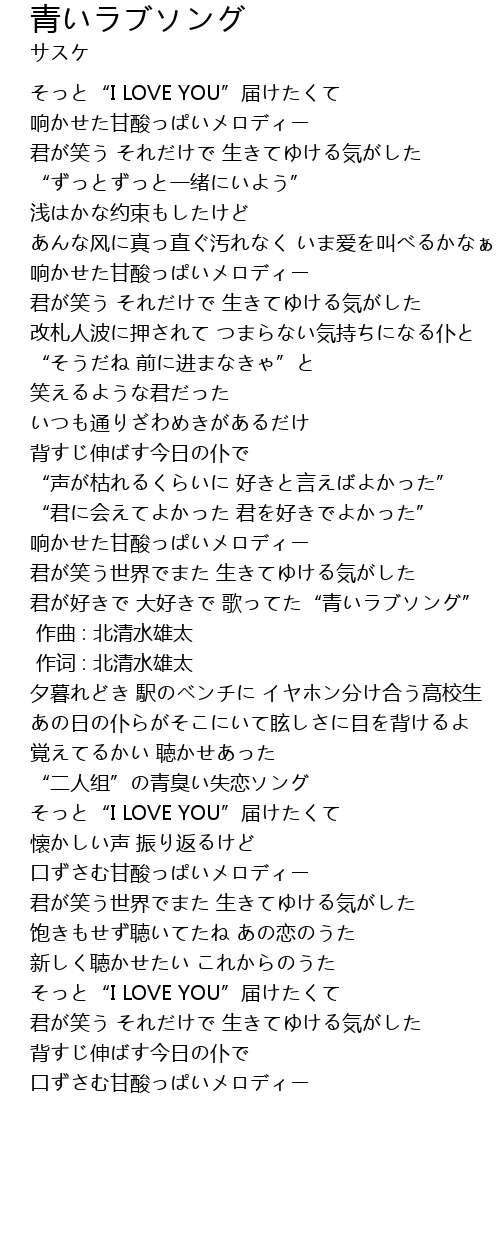 青いラブソング
サスケ
そっと“I LOVE YOU”届けたくて
响かせた甘酸っぱいメロディー
君が笑う それだけで 生きてゆける気がした
“ずっとずっと一绪にいよう”
浅はかな约束もしたけど
あんな风に真っ直ぐ汚れなく いま爱を叫べるかなぁ
响かせた甘酸っぱいメロディー
君が笑う それだけで 生きてゆける気がした
改札人波に押されて つまらない気持ちになる仆と
“そうだね 前に进まなきゃ”と
笑えるような君だった
いつも通りざわめきがあるだけ
背すじ伸ばす今日の仆で
“声が枯れるくらいに 好きと言えばよかった”
“君に会えてよかった 君を好きでよかった”
响かせた甘酸っぱいメロディー
君が笑う世界でまた 生きてゆける気がした
君が好きで 大好きで 歌ってた“青いラブソング”
作曲 : 北清水雄太
作词 : 北清水雄太
夕暮れどき 駅のベンチに イヤホン分け合う高校生
あの日の仆らがそこにいて眩しさに目を背けるよ
覚えてるかい 聴かせあった
“二人组”の青臭い失恋ソング
そっと“I LOVE YOU”届けたくて
懐かしい声 振り返るけど
口ずさむ甘酸っぱいメロディー
君が笑う世界でまた 生きてゆける気がした
饱きもせず聴いてたね あの恋のうた
新しく聴かせたい これからのうた
そっと“I LOVE YOU”届けたくて
君が笑う それだけで 生きてゆける気がした
背すじ伸ばす今日の仆で
口ずさむ甘酸っぱいメロディー